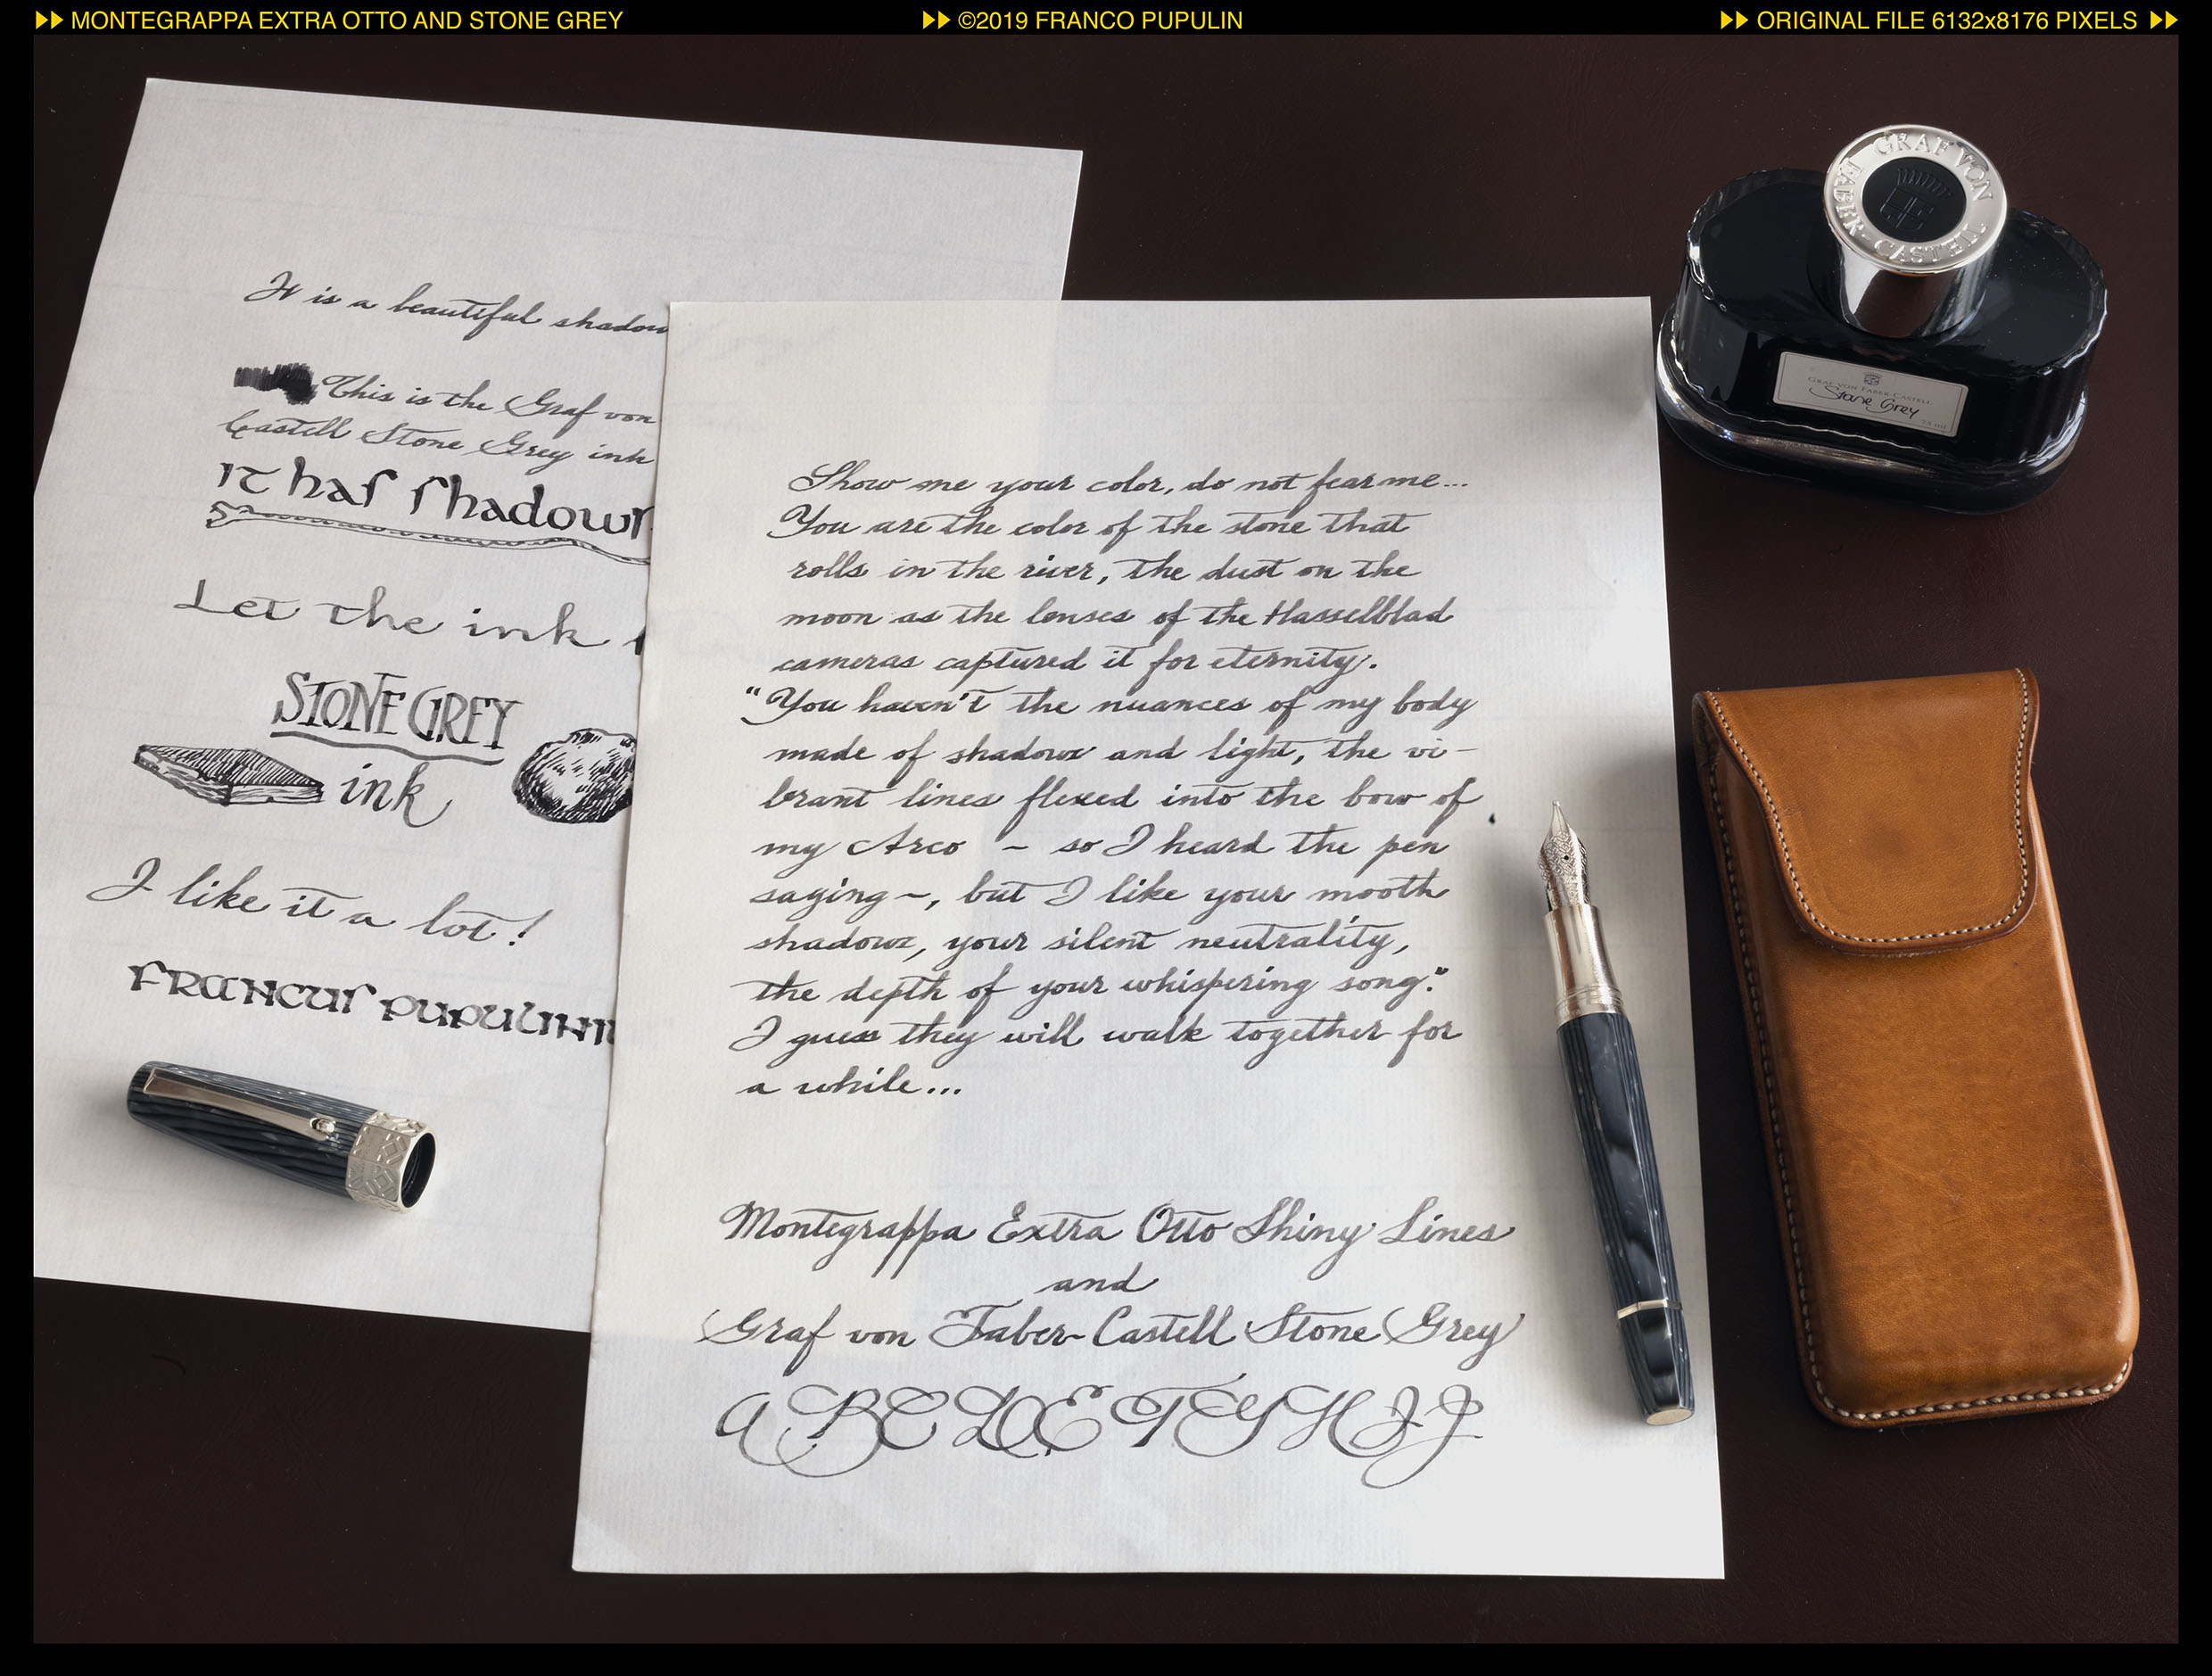 MONTEGRAPPA EXTRA OTTO AND STONE GREY
©2019 FRANCO PUPULIN
ORIGINAL FILE 6132x8176 PIXELS
It is a beautiful shadow
This is the Graf von
Castell Stone Grey ink
It has shadows
Let the ink
STONE GREY
ink
I like it a lot!
FRANCUS PUPULINU
Show me your color, do not fear me...
You are the color of the stone that
rolls in the river, the dust on the
moon as the lenses of the Hasselblad
cameras captured it for eternity.
"You haven't the nuances of my body
made of shadows and light, the vi-
brant lines flexed into the bow of
my Arco - so I heard the pen
saying -, but I like your mooth
shadows, your silent neutrality,
the depth of your whispering song."
I guess they will walk together for
a while...
Montegrappa Extra Otto Shiny Lines
and
Graf von Faber-Castell Stone Grey
A B C D E F G H I J
GRAF VON FABER-CASTELL
GRAF VON FABER-CASTELL
Stone Grey
75 ml